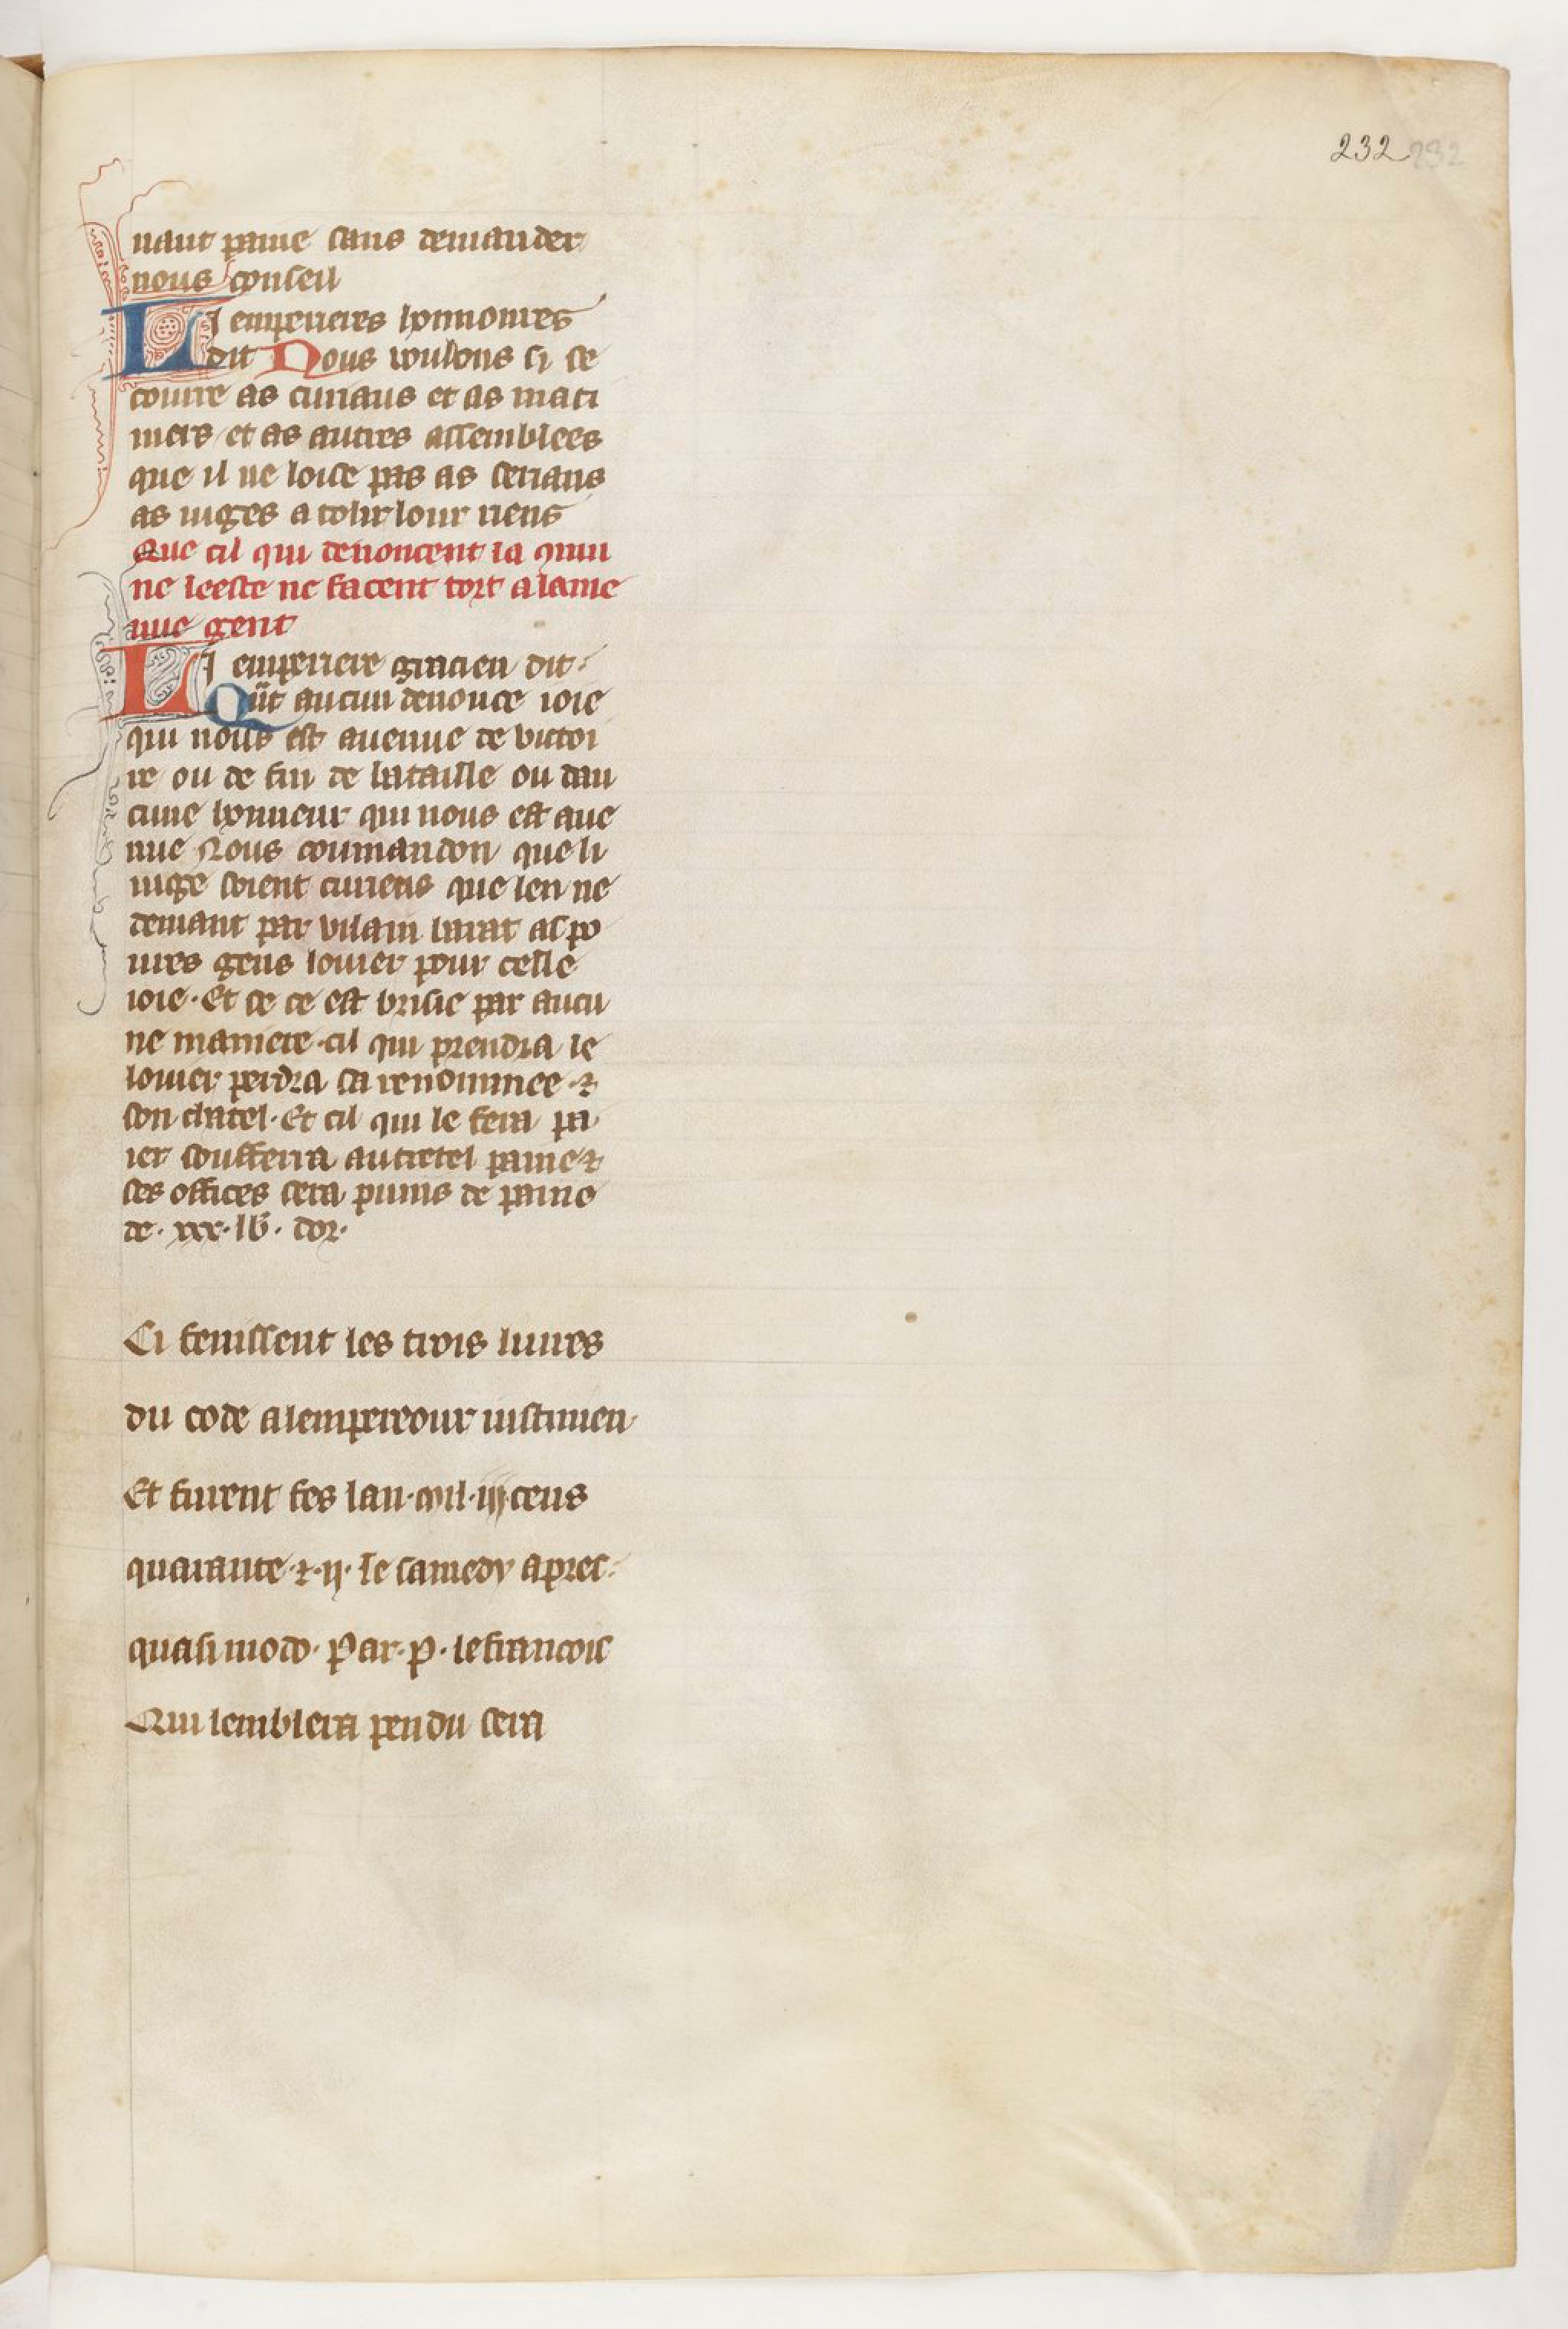 232 232
nant paine sans demander
nous conseil
Li emperieres honnoures
dit Nous voulons si se
courre as curiaus et as mari
niers et as autres assemblees
que il ne loise pas as serians
as iuges a tolir lour riens
Que cil qui denoncent la quin
ne leeste ne facent tort a lame
nue gent
Li emperiere gracien dit
Qūt aucun denonce ioie
qui nous est auenue de victoi
re ou de fin de bataille ou dau
cune honneur qui nous est aue
nue Nous commandon que li
iuge soient curieus que len ne
demant par vilain barat as po
ures gens louier pour celle
ioie. Et se ce est brisie par aucu
ne maniere. cil qui prendra le
louier perdra sa renommee. ⁊
son chatel. Et cil qui le fera pa
ier soufferra autretel paine ⁊
ses offices sera punis de paine
de. xxx. lb̄. dor.
Ci fenissent les trois liures
du code a lempereour iustinien
Et furent fes lan. mil. iij cens
quarante. ⁊. ij. le samedy apres
quasimodo. Par. P. le francois
Qui lemblera pendu sera